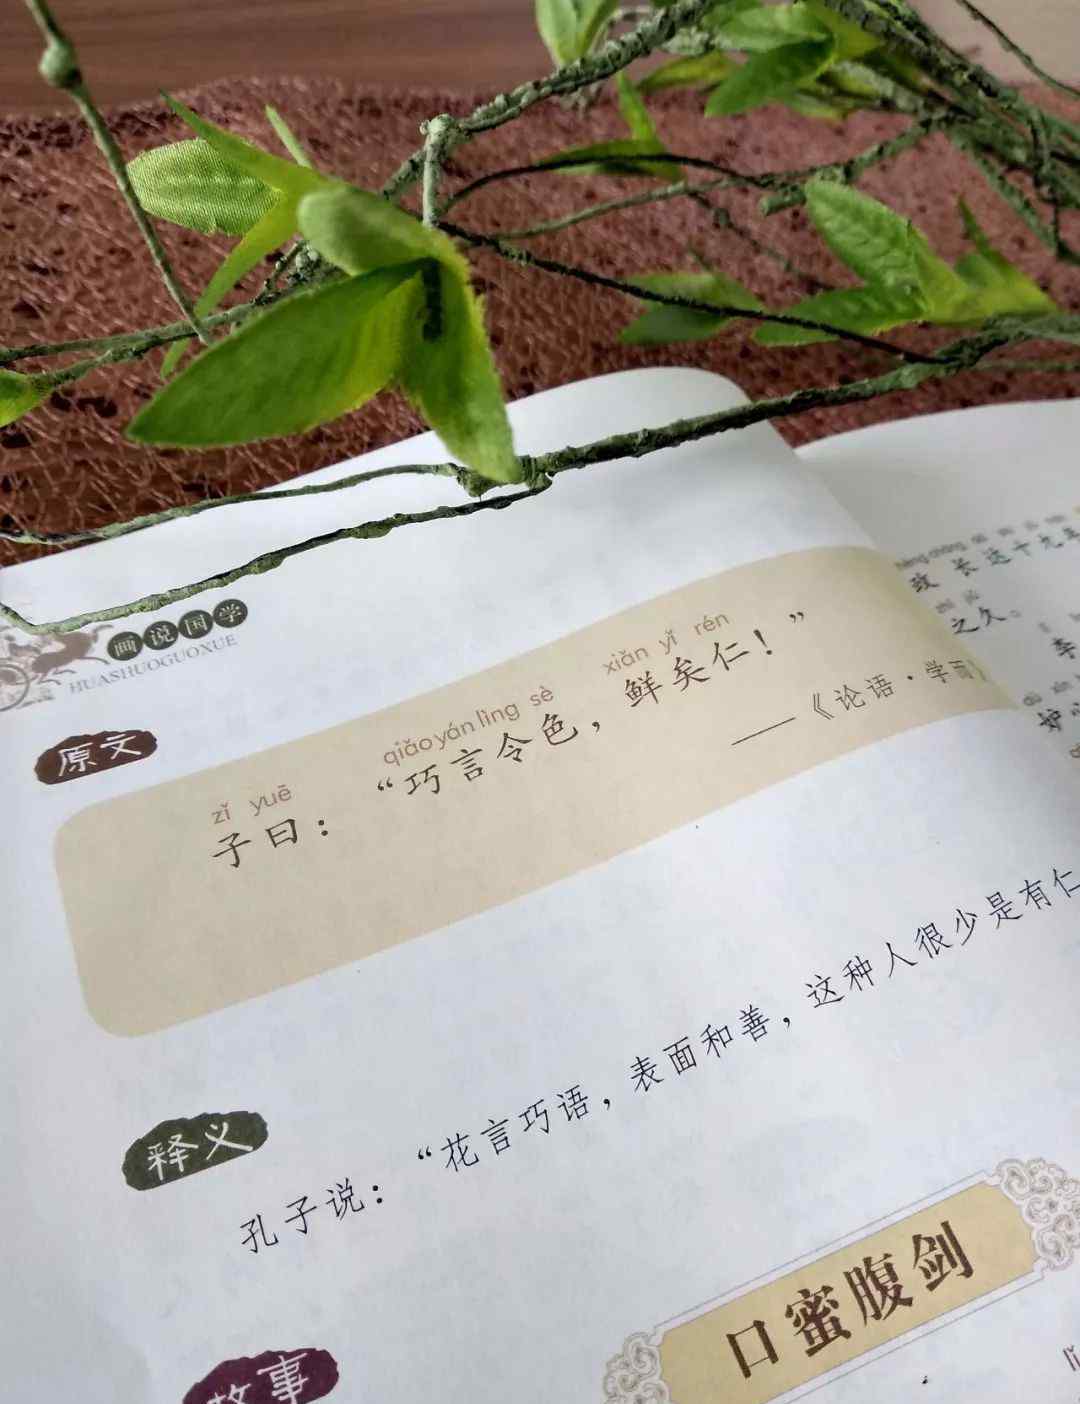 画说国学
HUASHUOGUOXUE
原文
zǐ yuē qiǎo yán lìng sè xiǎn yǐ rén
子曰：“巧言令色，鲜矣仁！”
——《论语·学而》
释义
孔子说：“花言巧语，表面和善，这种人很少是有仁
口蜜腹剑
故事
长达十九年
之久。
李
妒